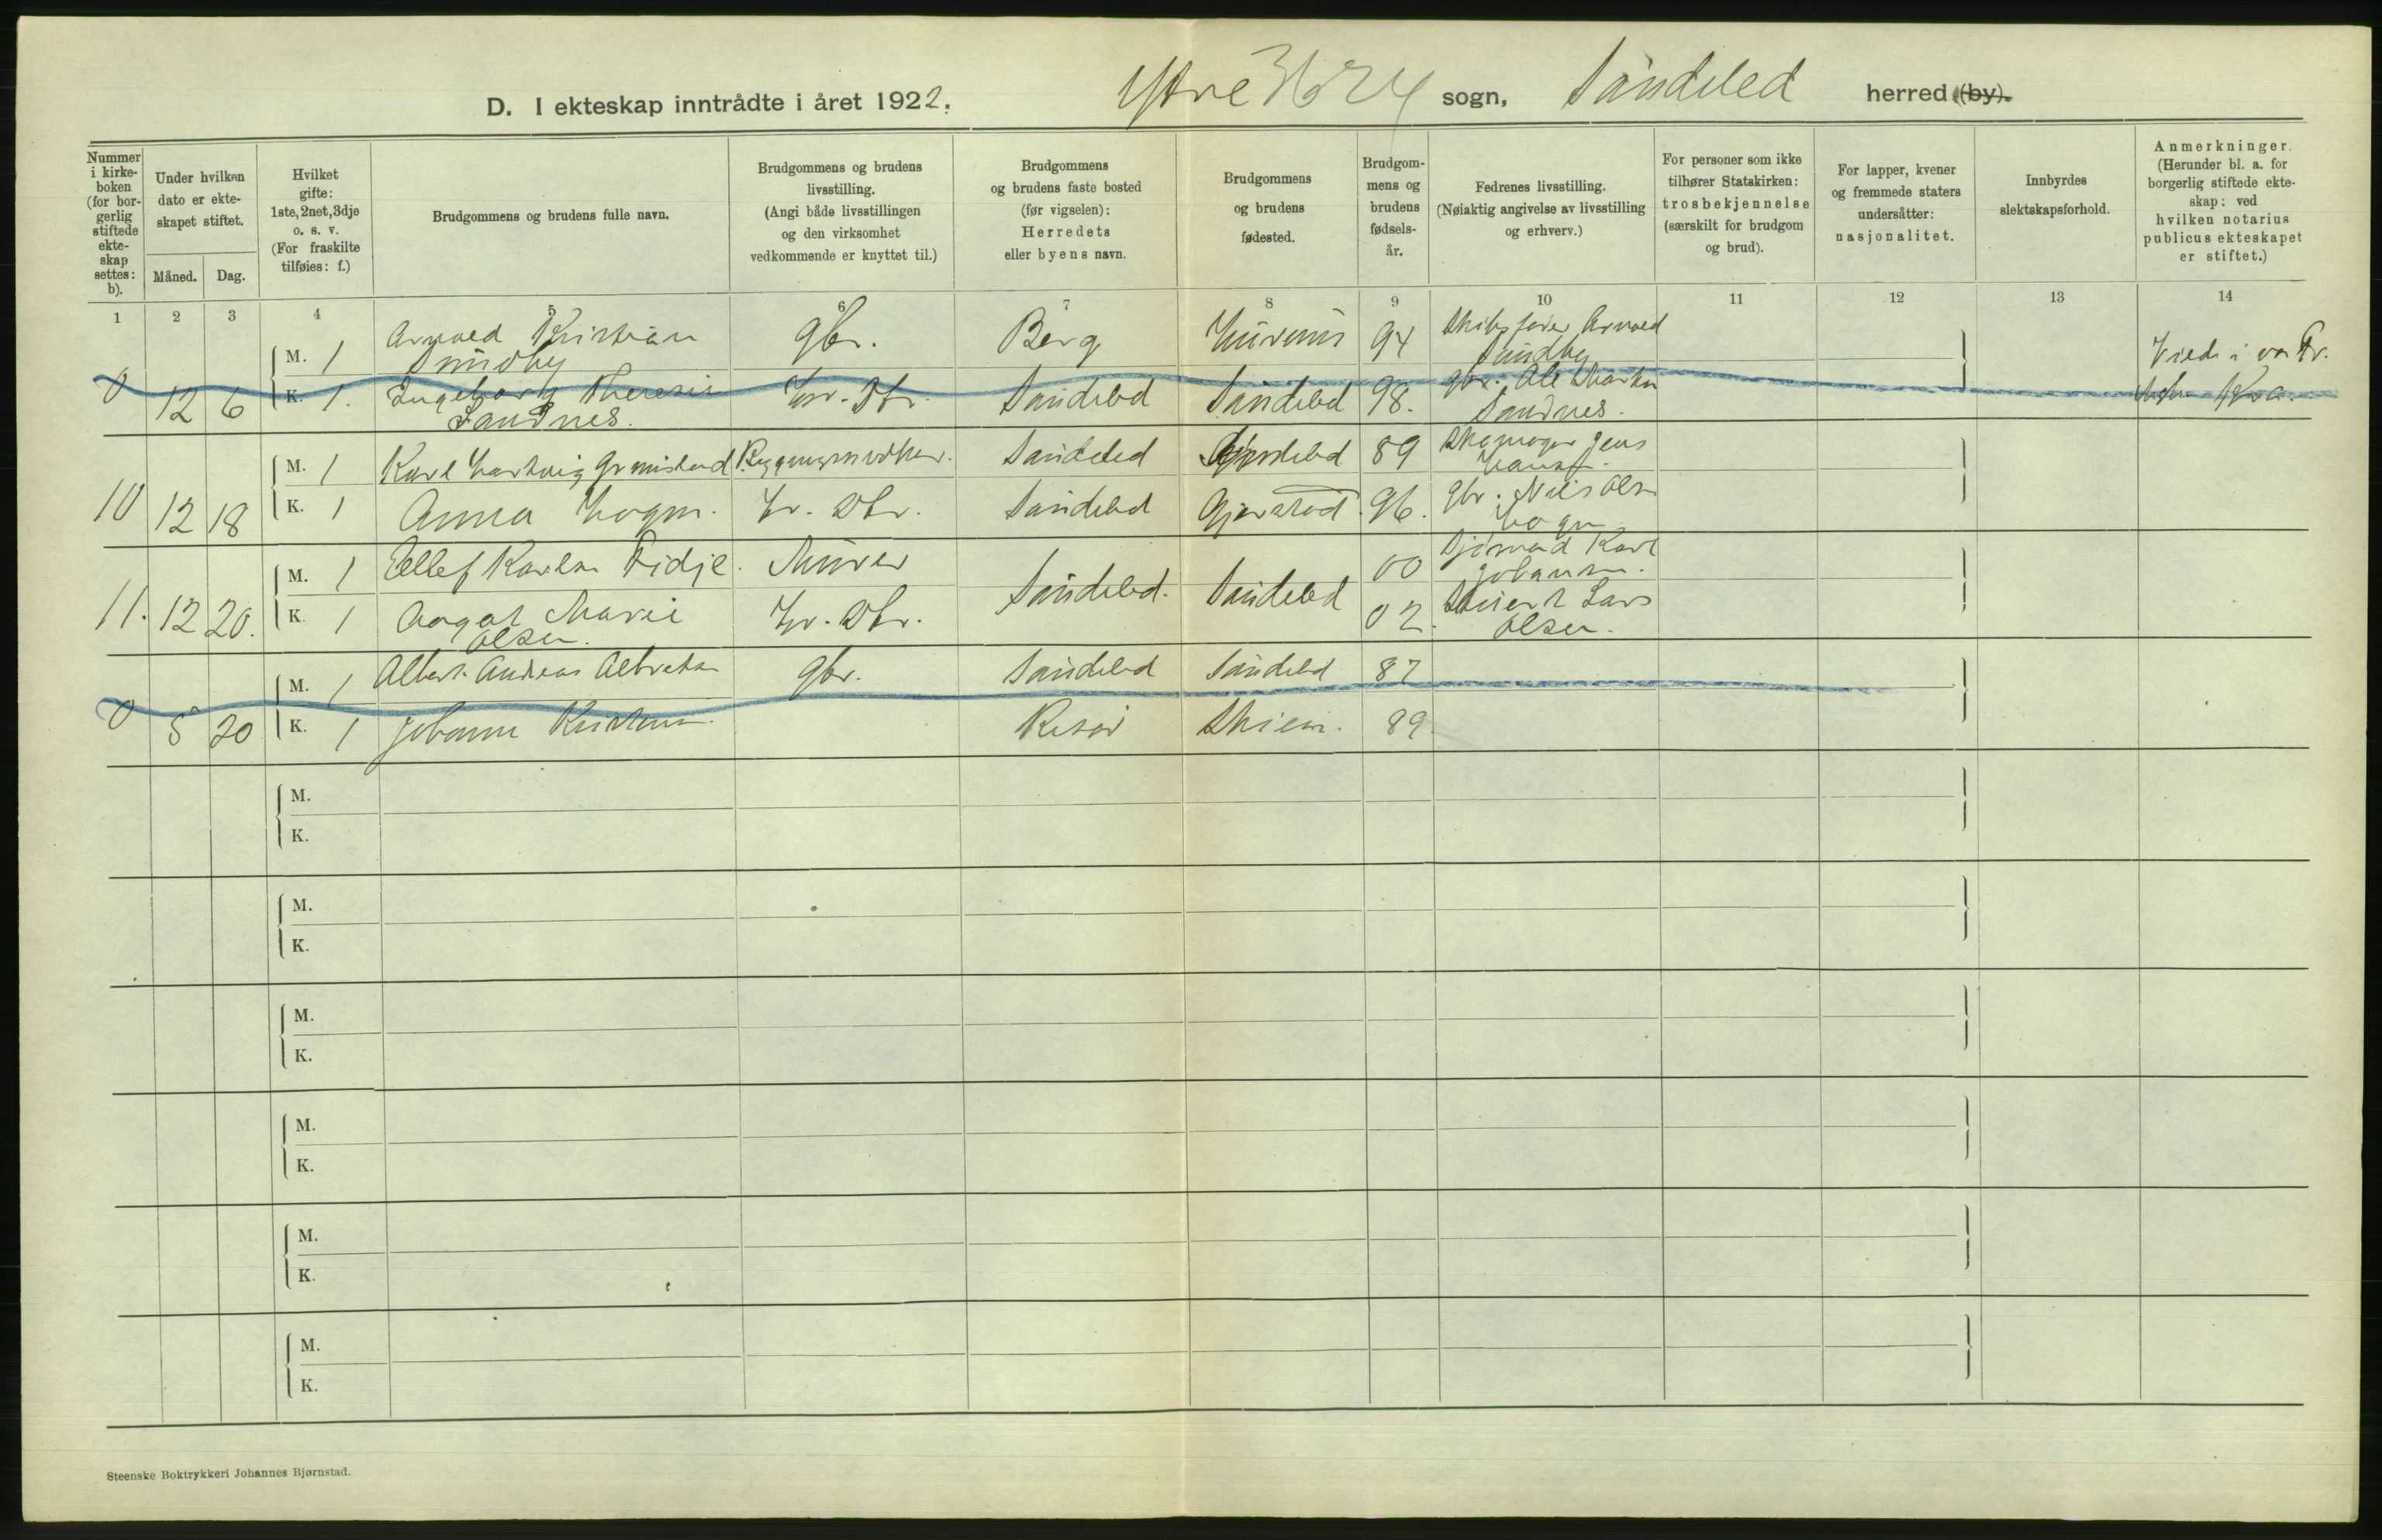 D. I ekteskap inntrådte i året 1922. Ytre 3624 sogn, Søndeled herred (by).
Nummer i kirke- boken (for bor- gerlig stiftede ekte- skap settes: b).
Under hvilken dato er ekte- skapet stiftet.
Måned. Dag.
Hvilket gifte: 1ste, 2net, 3dje o. s. v. (For fraskilte tilføies: f.)
Brudgommens og brudens fulle navn.
Brudgommens og brudens livsstilling. (Angi både livsstillingen og den virksomhet vedkommende er knyttet til.)
Brudgommens og brudens faste bosted (før vigselen): Herredets eller byens navn.
Brudgommens og brudens fødested.
Brudgom- mens og brudens fødsels- år.
Fedrenes livsstilling. (Nøiaktig angivelse av livsstilling og erhverv.)
For personer som ikke tilhører Statskirken: trosbekjennelse (særskilt for brudgom og brud).
For lapper, kvener og fremmede staters undersåtter: nasjonalitet.
Innbyrdes slektskapsforhold.
Anmerkninger. (Herunder bl. a. for borgerlig stiftede ekte- skap: ved hvilken notarius publicus ekteskapet er stiftet.)
1 2 3 4 5 6 7 8 9 10 11 12 13 14
M. 1 Arnold Kristian gbr. Berg Hurum 94 Arnold
Sundby Sundby
0 12 6 K. 1. Ingeborg Theresie Hr. Dtr. Søndeled Søndeled 98. gbr. Ole
Sandnes. Sandnes.
M. 1 Karl Hartvig Søndeled 89 Skomager Jens
Hansen.
10 12 18 K. 1 Anna Hr. Dtr. Søndeled Gjerstad 96. gbr. Nils Olsen
M. 1 Ellef Karlsen Fidje. Murer 00 Sjømand Karl
Søndeled. Søndeled Johansen.
11. 12 20. K. 1 Aagot Marie Hr. Dtr. 02. Lars
Olsen. Olsen.
M. 1 Albert Andreas Albretsen gbr. Søndeled Søndeled 87
0 5 20 K. 1 Johanne Kristensen. Risør Skien. 89.
M.
K.
M.
K.
M.
K.
M.
K.
M.
K.
M.
K.
Steenske Boktrykkeri Johannes Bjørnstad.